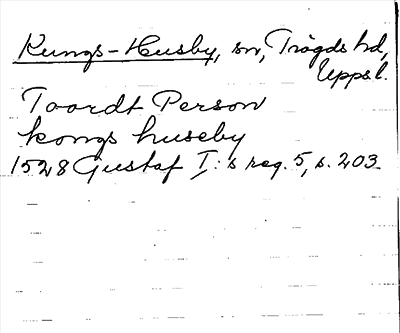 Kungs-Husby, sn, Trögds hd,
Upps l.
Toordt Person
kongs huseby
1528 Gustaf I:s reg. 5, s. 203